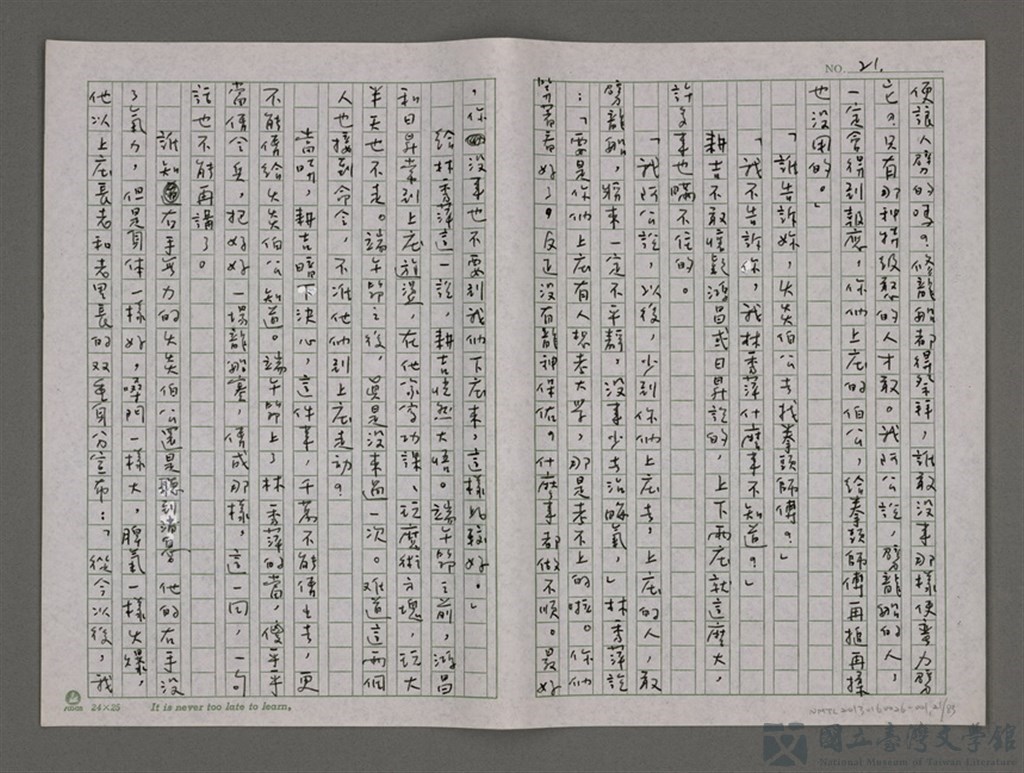 NO. 21.
便讓人劈的嗎?修龍船都得祭拜,誰敢沒事那樣使蠻力劈
它?只有那種特級憨的人才敢。我阿公說,劈龍船的人,
一定會得到報應,你們上庄的伯公,給拳頭師傅再搥再揉
也沒用的。」
「誰告訴妳,火炎伯公去找拳頭師傅?」
「我不告訴你,我林秀萍什麼事不知道?」
耕吉不敢懷疑鴻昌或日昇說的,上下兩庄就這麼大,
許多事也瞞不住的。
「我阿公說,以後,少到你們上庄去,上庄的人,敢
劈龍船,將來一定不平靜,沒事少去沾晦氣,」林秀萍說
:「要是你們上庄有人想考大學,那是考不上的啦。你們
等著看好了,反正沒有龍神保佑,什麼事都做不順。最好
,你沒事也不要到我們下庄來,這樣比較好。」
給林秀萍這一說,耕吉恍然大悟。端午節之前,鴻昌
和日昇常到上庄游盪,在他家寫功課、玩魔術方塊,玩大
半天也不走。端午節之後,真是沒來過一次。难道這兩個
人也接到命令,不准他們到上庄走動?
當時,耕吉暗下決心,這件事,千萬不能傳出去,更
不能傳給火炎伯公知道。端午節上了林秀萍的當,傻乎乎
當傳令兵,把好好一場龍船賽,傳成那樣,這一回,一句
話也不能再講了。
誰知右手無力的火炎伯公還是聽到消息,他的右手沒
了氣力,但是身体一樣好,嗓門一樣大,脾氣一樣火爆,
他以上庄長老和老里長的双重身分宣布:「從今以後,我
24×25
It is never too late to learn.
NMTL20130160026-001,21/83
國立臺灣文學館
National Museum of Taiwan Literature